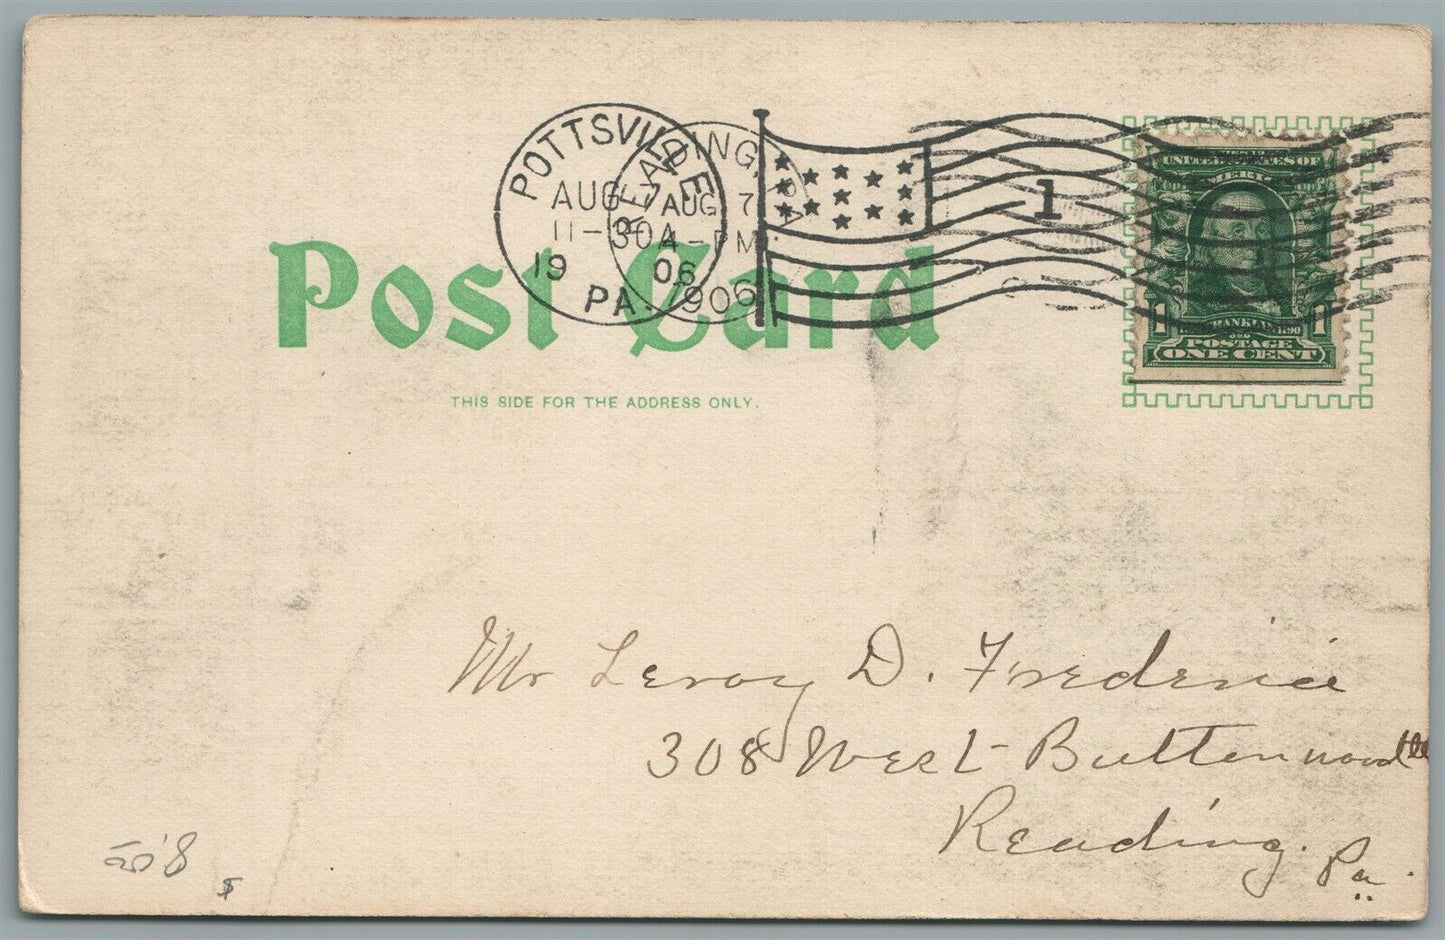 POTTSVILLE
AUG 7
11-30A
19 06
PA.
READING, PA
AUG 7
4-PM
1906
1
UNITED STATES OF
AMERICA
1 FRANKLIN 1
POSTAGE
ONE CENT
Post Card
THIS SIDE FOR THE ADDRESS ONLY.
Mr Leroy D. Frederici
308 West Buttonwood
Reading.
Pa.